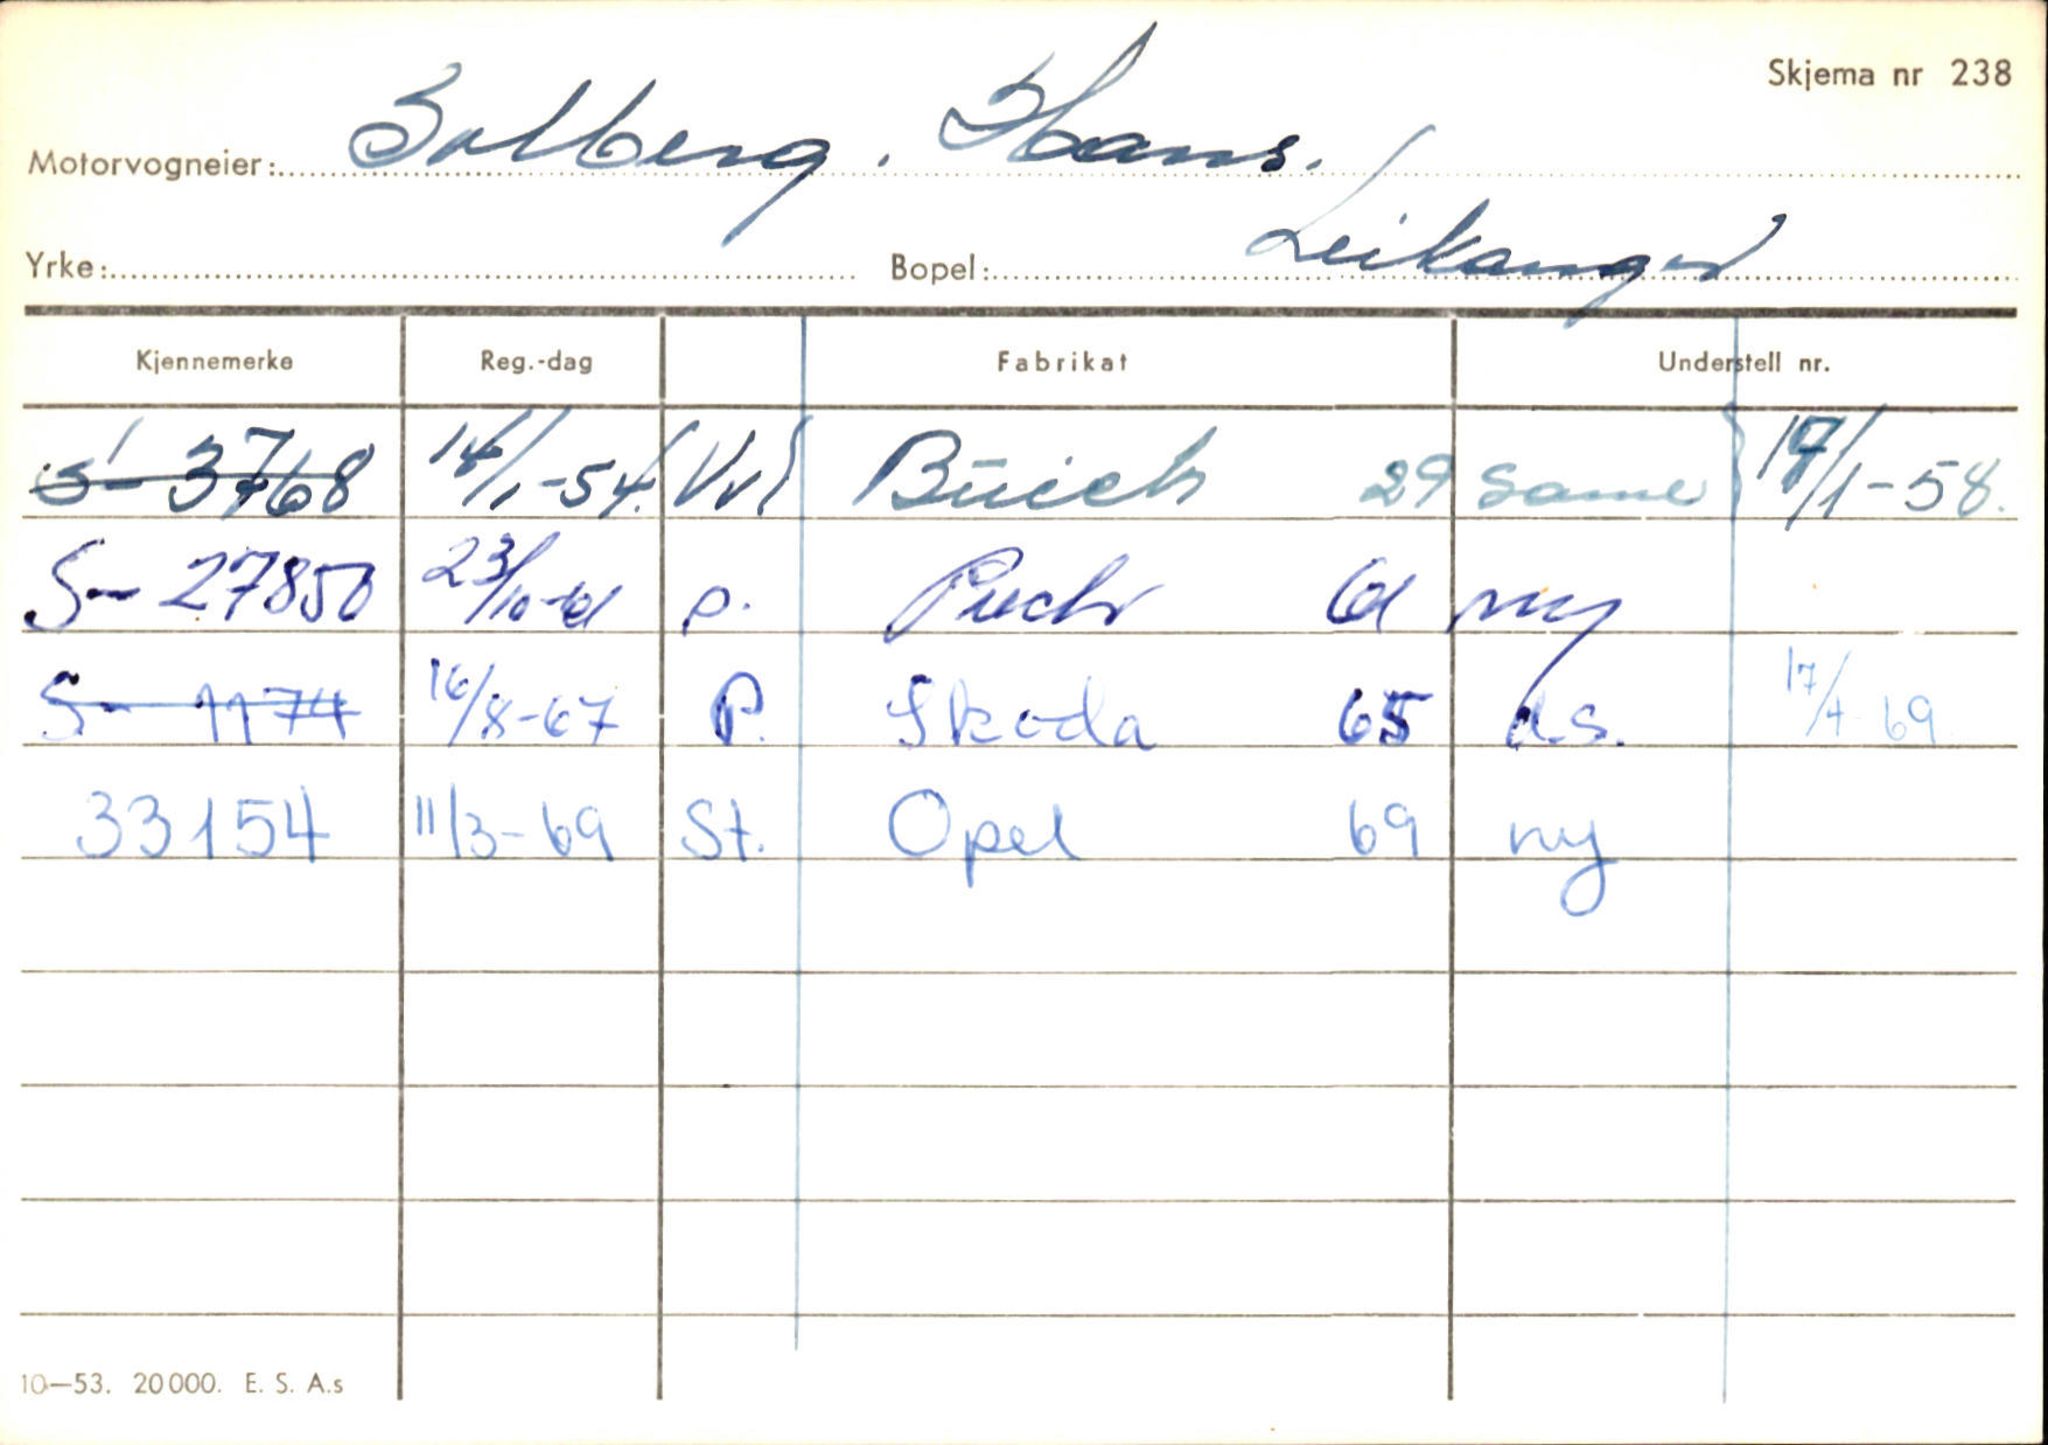 Skjema nr 238
Motorvogneier: Solberg. Hans.
Yrke: Bopel: Leikanger
Kjennemerke Reg.-dag Fabrikat Understell nr.
S-3768 14/1-54. Vvl Buick 29 same 17/1-58.
S-27850 23/10-61 p. Puch 61 ny
S-1174 16/8-67 P. Skoda 65 d.s. 17/4-69
33154 11/3-69 St. Opel 69 ny
10-53. 20000. E. S. A.s